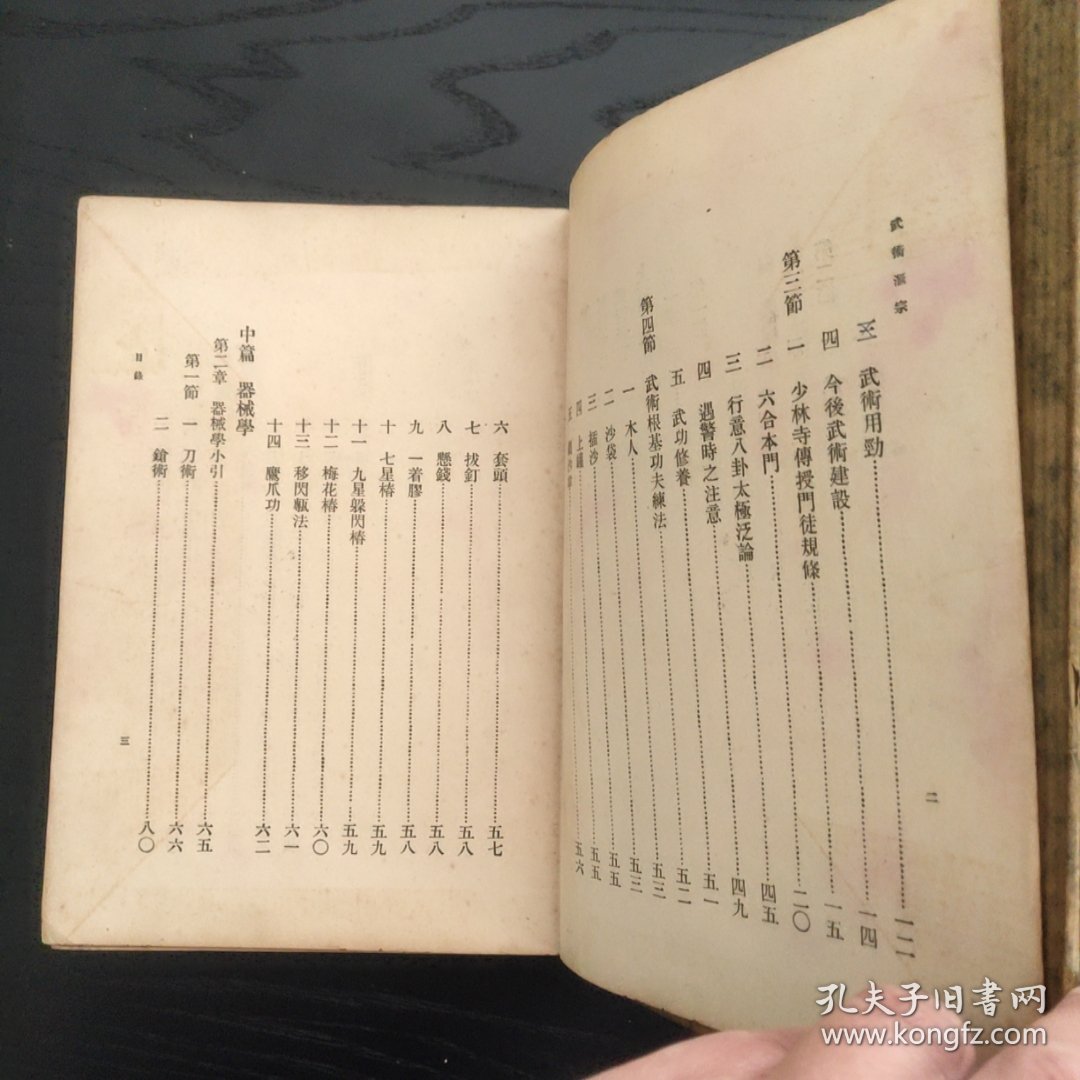 武術滙宗
三 武術用勁 一二
四 今後武術建設 一四
第三節 一 少林寺傳授門徒規條 一五
二 六合本門 二〇
三 行意八卦太極泛論 四五
四 遇警時之注意 四九
五 武功修養 五一
第四節 武術根基功夫練法 五二
一 木人 五三
二 沙袋 五三
三 插沙 五五
四 上罐 五五
五 五六
二
六 套頭 五七
七 拔釘 五八
八 懸錢 五八
九 一着膠 五八
十 七星樁 五九
十一 九星躲閃樁 五九
十二 梅花樁 六〇
十三 移閃甎法 六一
十四 鷹爪功 六二
中篇 器械學
第二章 器械學小引 六五
第一節 一 刀術 六六
二 鎗術 八〇
目錄
三
孔夫子旧书网
www.kongfz.com